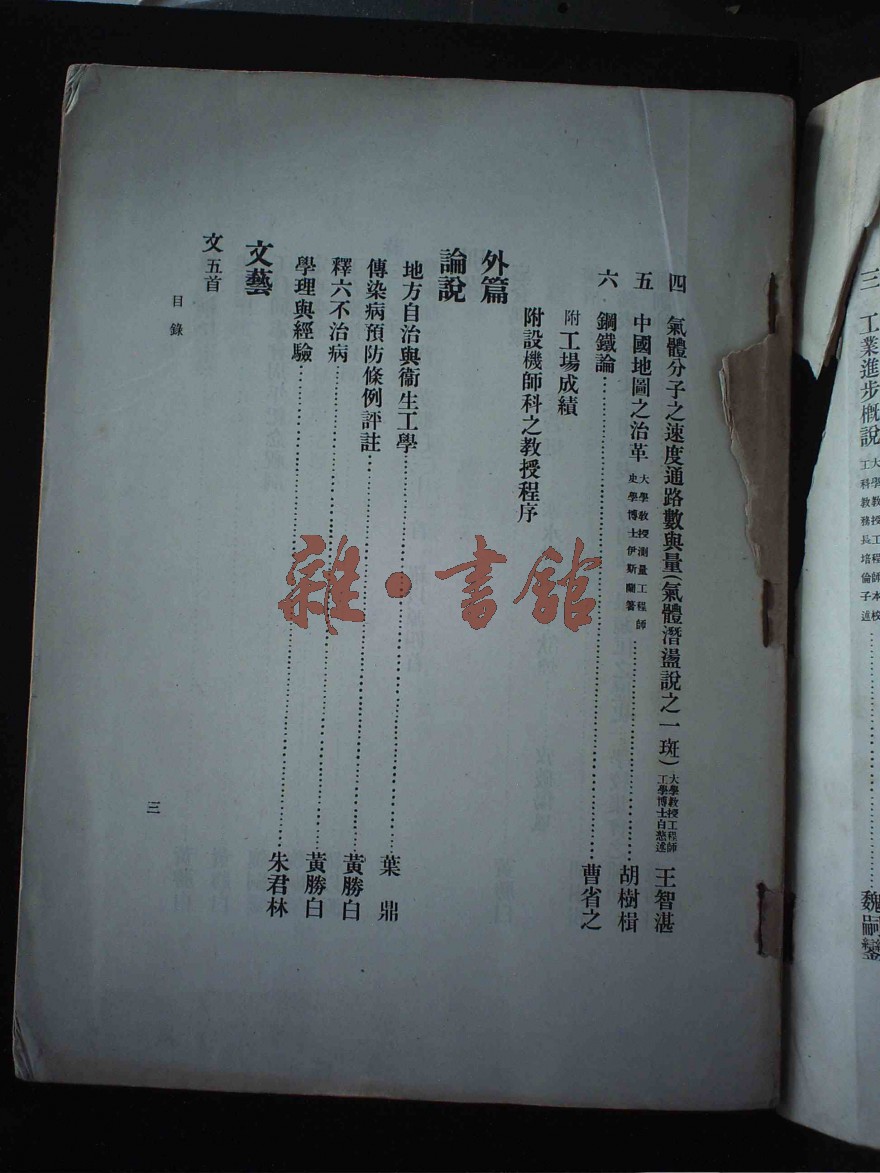 三　工業進步概說 大學教授工程師本校工科教務長培倫子述……魏嗣鑾
四　氣體分子之速度通路數與量(氣體潛盪說之一斑) 大學教授工程師工學博士白慗述 王智湛
五　中國地圖之沿革 大學教授測量工程師史學博士伊斯蘭著……胡樹楫
六　鋼鐵論……曹省之
附工場成績
附設機師科之教授程序
外篇
論說
地方自治與衞生工學……葉鼎
傳染病預防條例評註……黃勝白
釋六不治病……黃勝白
學理與經驗……朱君林
文藝
文五首
目錄
三
雜·書館